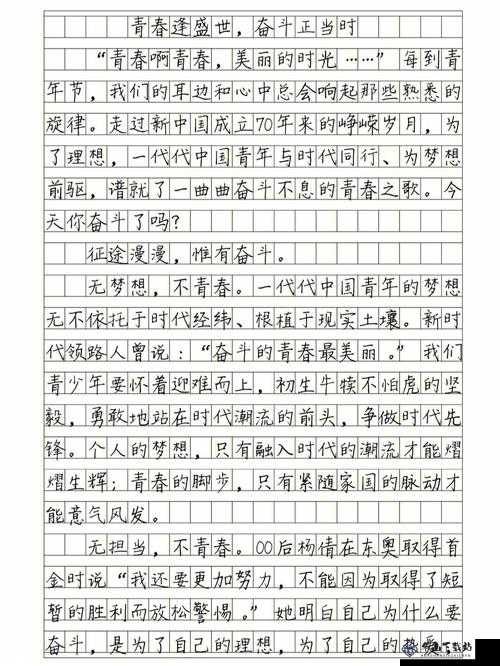 青春逢盛世，奋斗正当时
“青春啊青春，美丽的时光……”每到青
年节，我们的耳边和心中总会响起那些熟悉的
旋律。走过新中国成立70年来的峥嵘岁月，为
了理想，一代代中国青年与时代同行、为梦想
前驱，谱就了一曲曲奋斗不息的青春之歌。今
天你奋斗了吗？
征途漫漫，惟有奋斗。
无梦想，不青春。一代代中国青年的梦想
无不依托于时代经纬、根植于现实土壤。新时
代领路人曾说：“奋斗的青春最美丽。”我们
青少年要怀着迎难而上，初生牛犊不怕虎的坚
毅，勇敢地站在时代潮流的前头，争做时代先
锋。个人的梦想，只有融入时代的潮流才能熠
熠生辉；青春的脚步，只有紧随家国的脉动才
能意气风发。
无担当，不青春。00后杨倩在东奥取得首
金时说“我还要更加努力，不能因为取得了短
暂的胜利而放松警惕。”她明白自己为什么要
奋斗，是为了自己的理想，为了自己的热爱